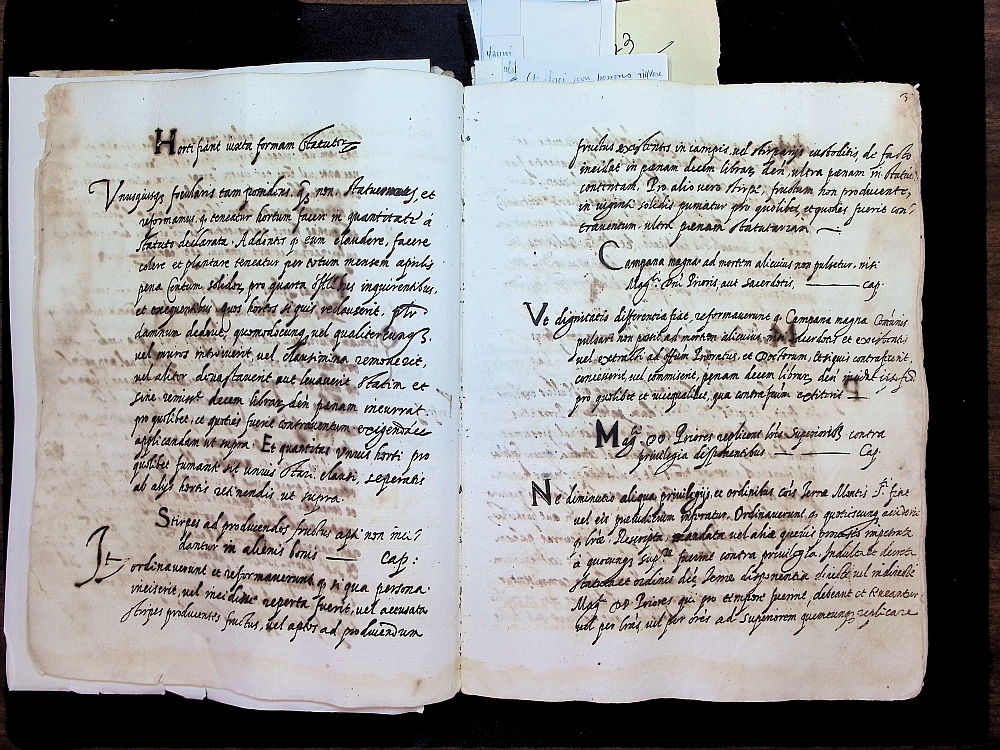 Horti fiant iuxta formam Statutor
Unusquisq; focularis tam pomdins. q; non, statuentes, et
reformamus, q teneatur hortum facere in quantitate à
statuto declarata. Addentes q eum claudere, facere
colere et plantare teneatur per totum mensem aprilis
pena centum soldor pro quarta offi bus inquirentibus,
et exequentibus quos hortos si quis reclauserit,
damnum dederit, quomodocunq; vel qualitercunq;
vel muros introiverit, vel clausimina removerit,
vel aliter devastaverit aut levaverit statim et
sine remiss decem librar den penam incurrat.
pro quolibet, et quoties fuerit contraventum exigende
applicandam ut supra. Et quantitas unius horti pro
quolibet fumante sit unius Star. clausi, seperatis
ab alijs hortis retinendis ut supra.
Stirpes ad producendos fructus apti non inci-
dantur in alienis bonis Cap:
It
ordinaverunt et reformaverunt q si qua persona
inciserit, vel incidisse reperta fuerit, vel accusata
stirpes producentes fructus, vel aptos ad producendum
3
fructus existentes in campis, vel stirparijs custoditis, de facto
incidat in penam decem librar den, ultra penam in statutis
contentam. Pro alio vero stirpe, fructum non producente,
in viginti soledis puniatur pro quolibet et quoties fuerit con-
traventum ultra penam statutariam
Campana magna ad mortem alicuius non pulsetur, nisi
Mag. Dni Prioris, aut sacerdotis, Cap.
Ut dignitatis differentia fiat, reformaverunt q Campana magna Comunis
pulsari non possit ad mortem alicuius, nisi sacerdotis et existentis
vel extracti ad offium Prioratus, et Doctorum, et si quis contrafecerit,
concesserit, vel commiserit, penam decem librar den incidat
pro quolibet et vicequalibet, qua contrafactum extiterit
Mag DD Priores replicent lris Superiorib contra
privilegia disponentibus Cap.
Ne diminutio aliqua privilegijs, et ordinibus cois Terrae Montis S. fiat
vel eis preiuditium inferatur. Ordinaverunt q quotiescunq acciderit
q lrae Rescripta, mandata vel alia quevis impetrata
à quocunq sup fuerint contra privilegia, Indulta et decreta
statuta et ordines dic Terrae disponentia directe vel indirecte
Mag DD Priores qui pro tempore fuerint, debeant et teneantur
vel per lras, vel per ores ad superiorem quemcunq replicare